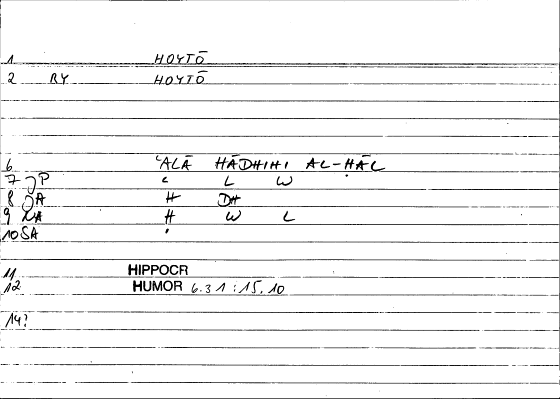 1 HOYTŌ
2 RY HOYTŌ
6 ʿALĀ HĀDHIHI AL-ḤĀL
7 JP ʿ L W
8 JA H DH
9 NA H W L
10 SA ʾ
11 HIPPOCR
12 HUMOR 6.31:15.10
14?